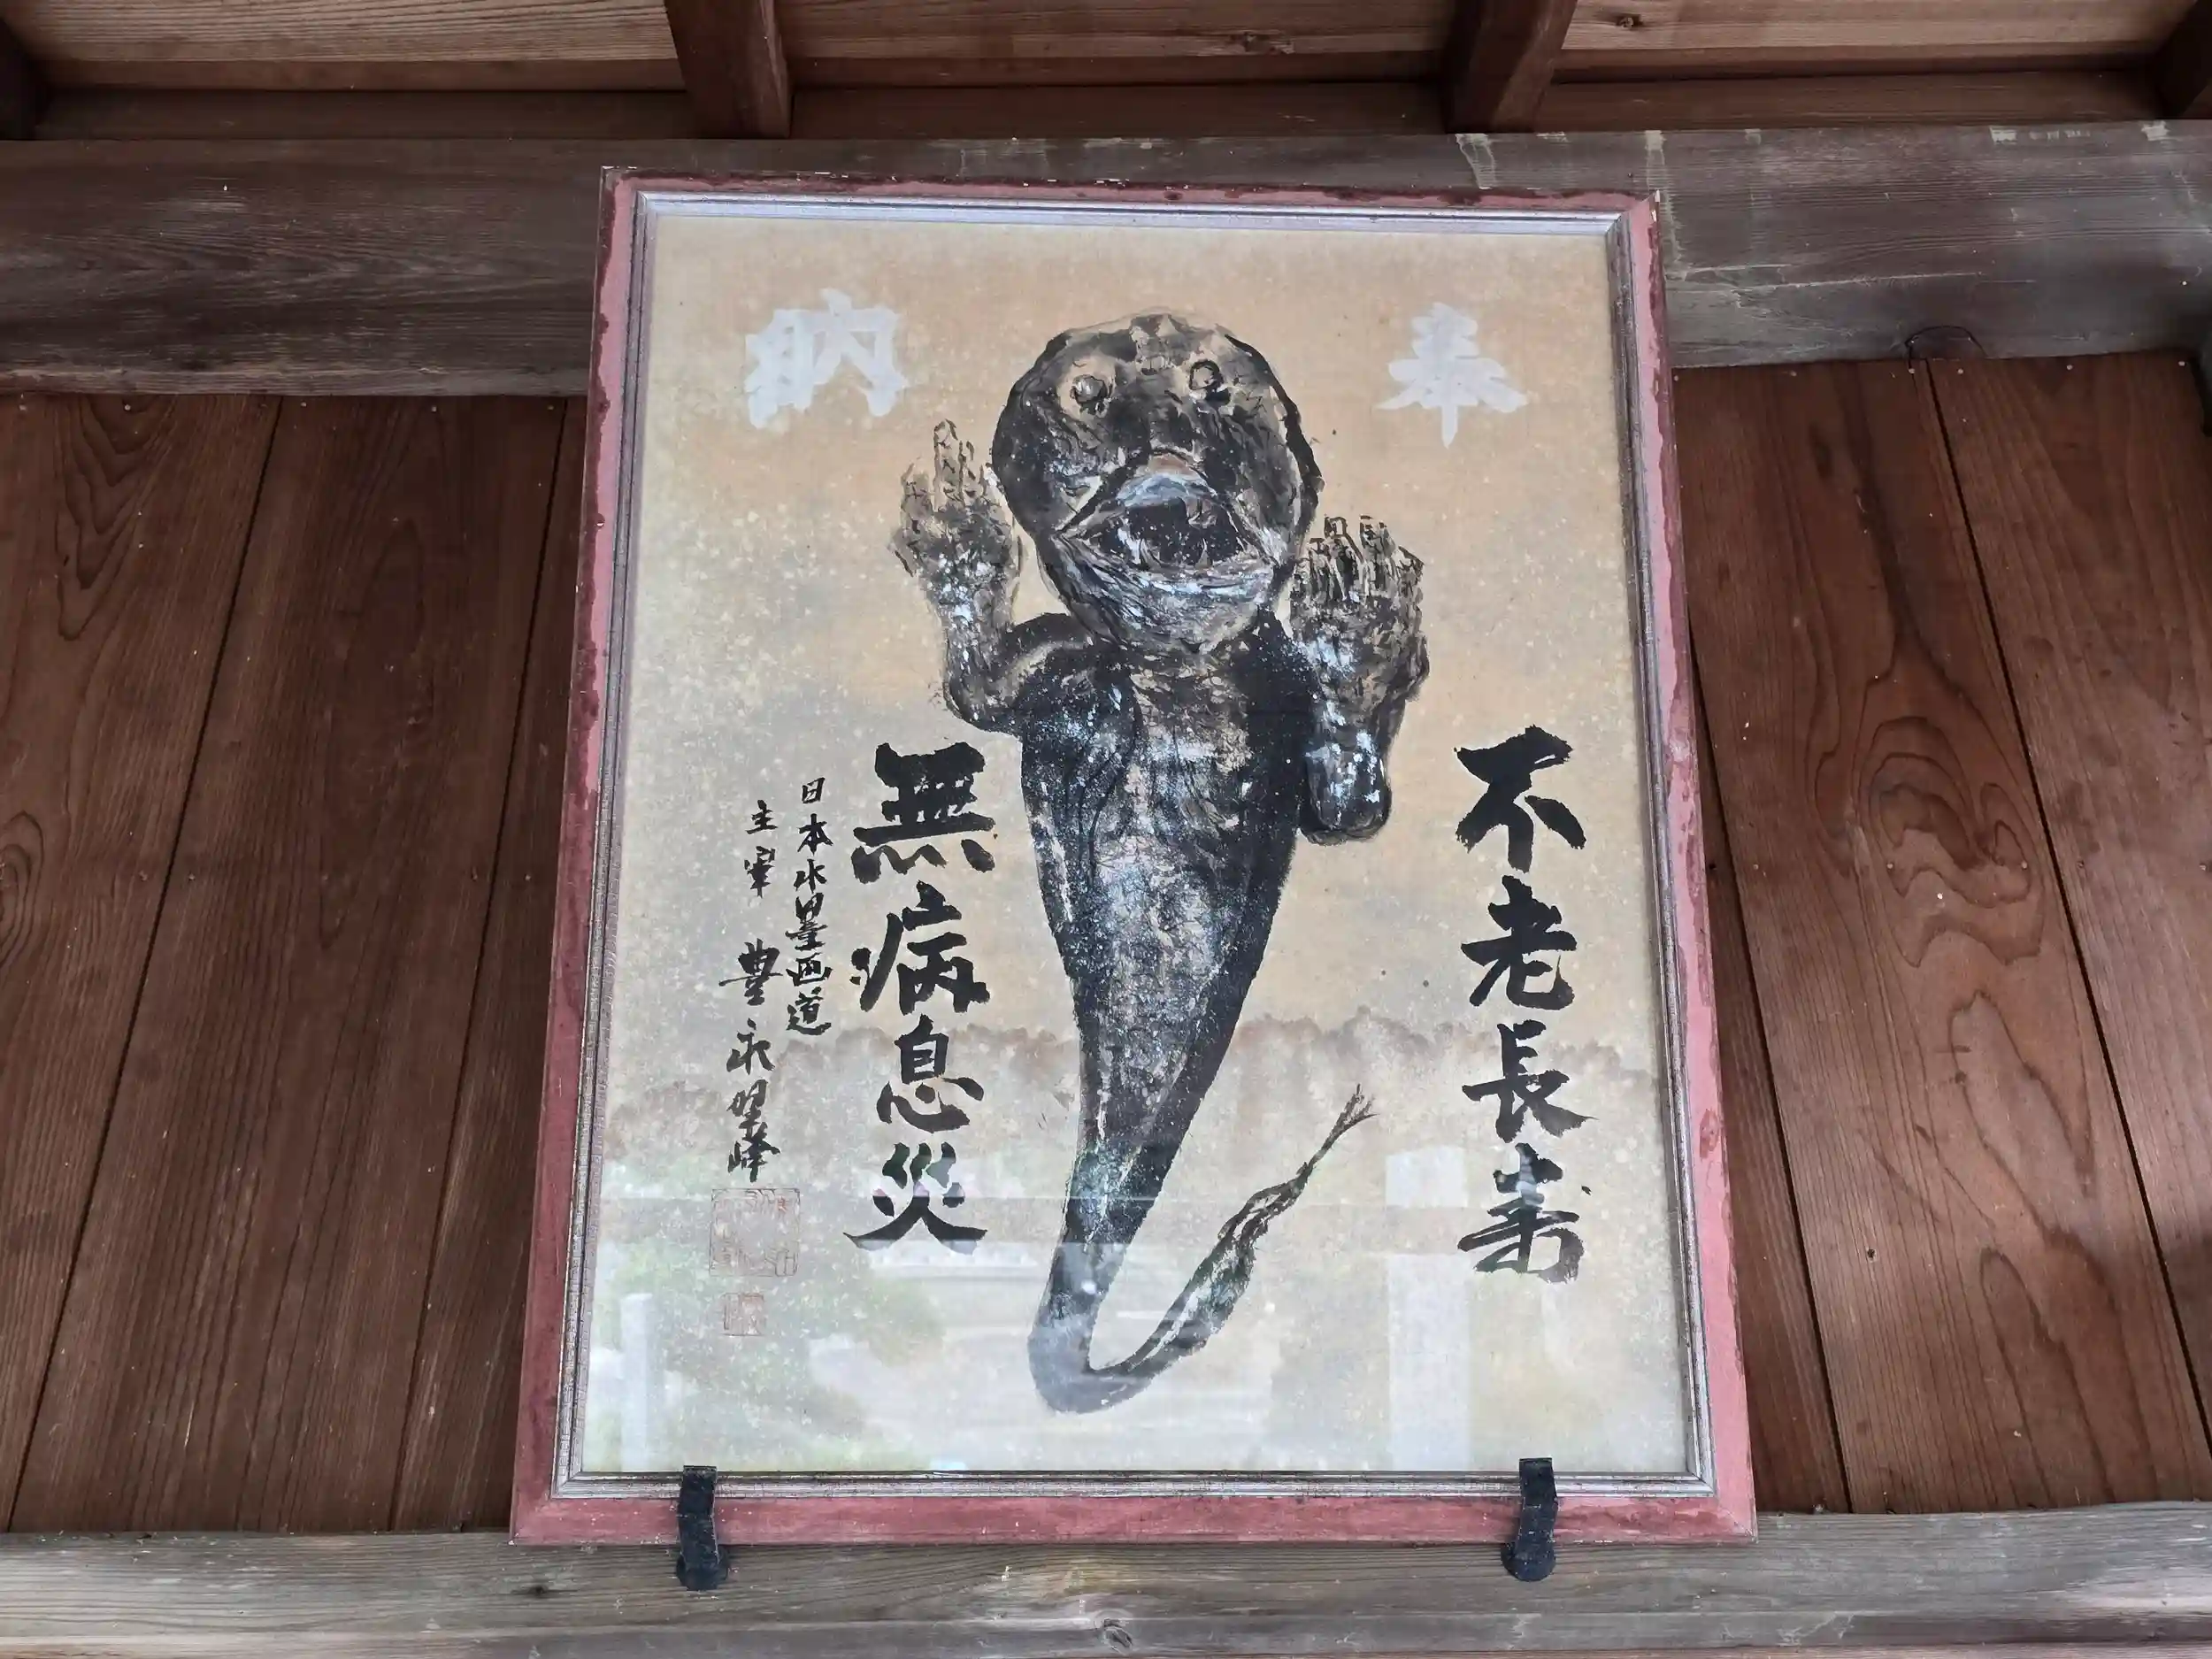 奉納
不老長寿
無病息災
日本水墨画道
主宰 豊永望峰